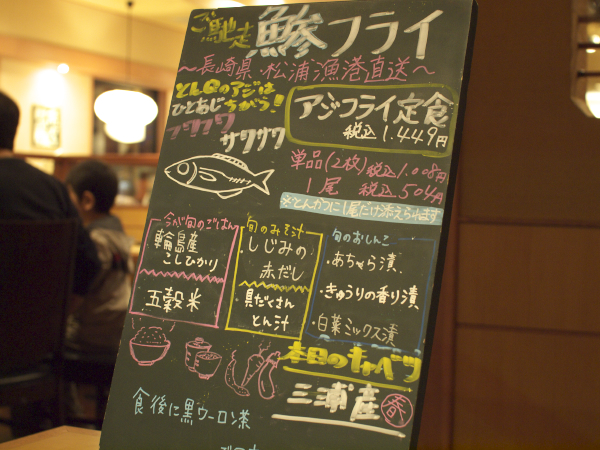 ご馳走 鯵フライ
〜長崎県 松浦漁港直送〜
とんQのアジは
ひとあじちがう!
フワフワ
サクサク
アジフライ定食
税込 1.449円
単品(2枚)税込1.008円
1尾 税込504円
※とんかつに1尾だけ添えられます
今が旬のごはん
輪島産
こしひかり
五穀米
旬のみそ汁
しじみの
赤だし
具だくさん
とん汁
旬のおしんこ
・あちゃら漬
・きゅうりの香り漬
・白菜ミックス漬
本日のキャベツ
三浦産 春
食後に黒ウーロン茶